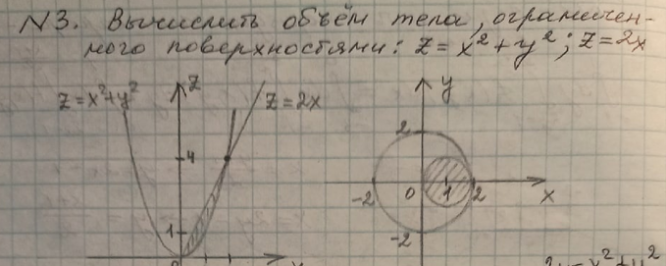 N3. Вычислить объём тела, ограничен-
ного поверхностями: z = x² + y²; z = 2x
z = x² + y²
z
z = 2x
4
1
0
x
y
2
-2
0
1
2
x
-2
2x = x² + y²